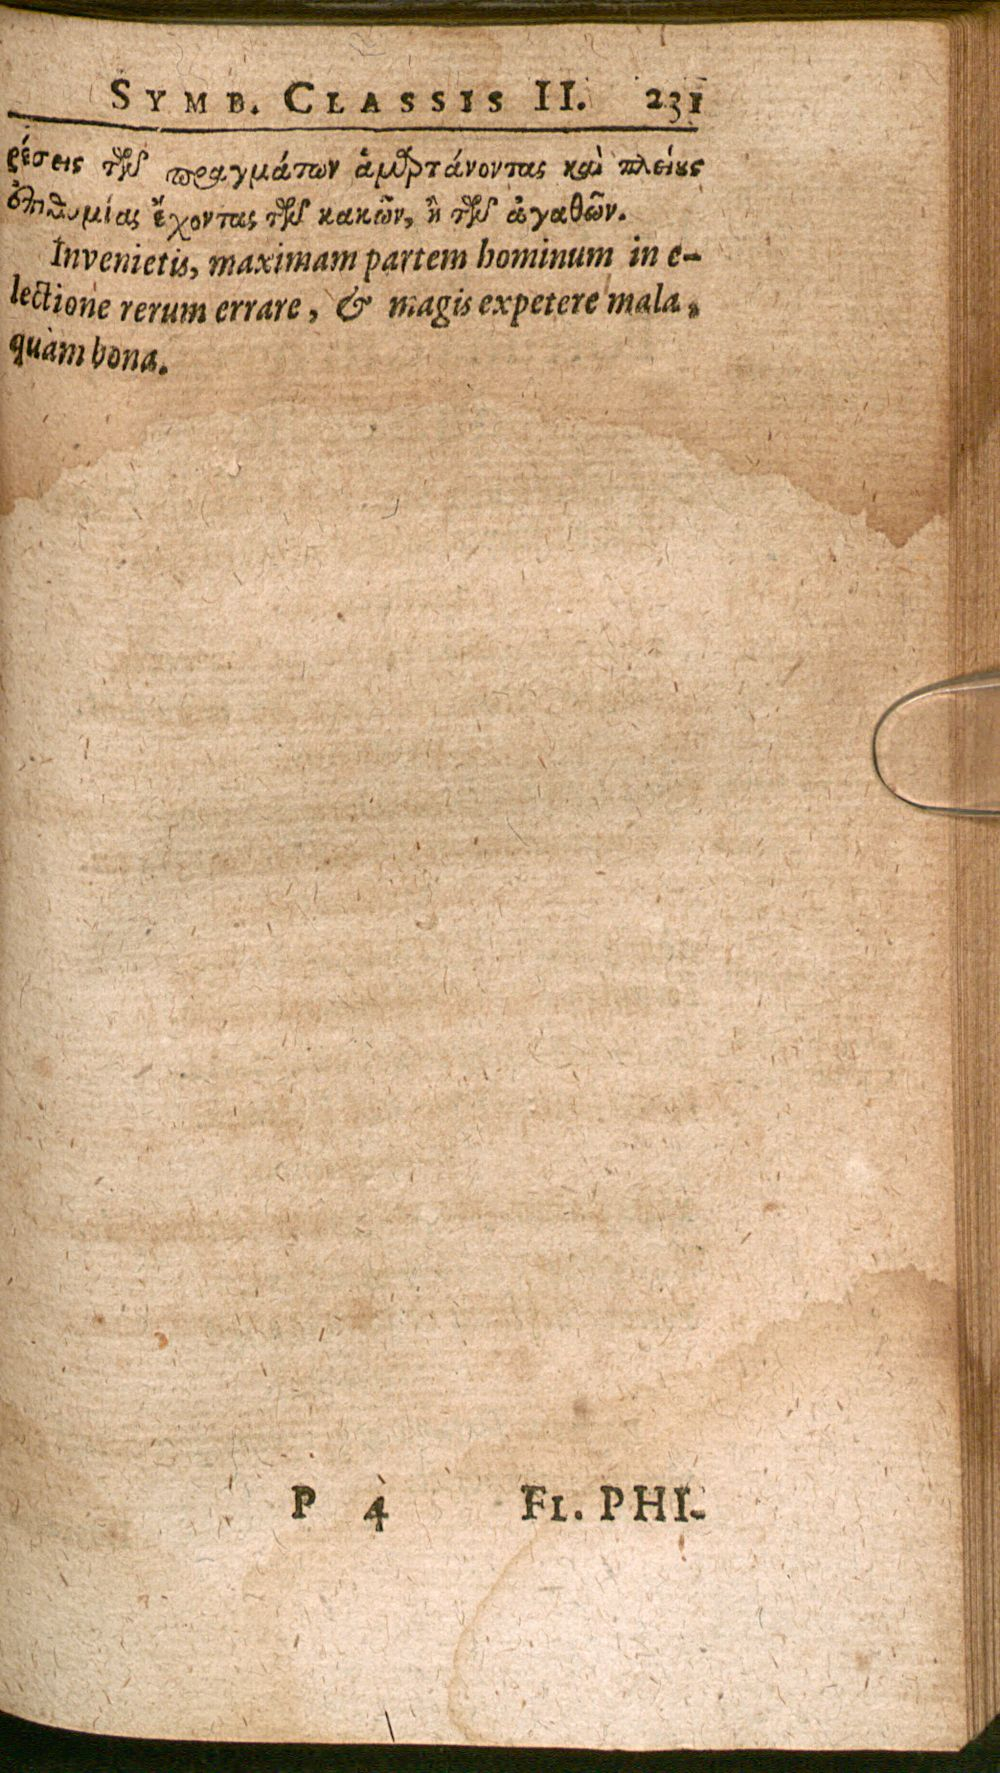 SYMB. CLASSIS II. 231
ρέσεις τῶν πραγμάτων ἁμαρτάνοντας καὶ πλείους
ἐπιθυμίας ἔχοντας τῶν κακῶν, ἢ τῶν ἀγαθῶν.
Invenietis, maximam partem hominum in e-
lectione rerum errare, & magis expetere mala,
quàm bona.
P 4 FI. PHI-